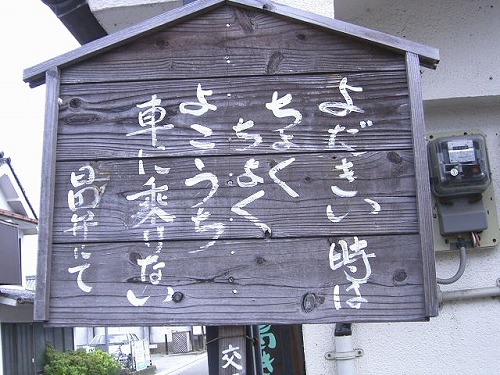 よだきい時は
ちょく
ちょく
よこうち
車に乗りない
日田弁にて
交